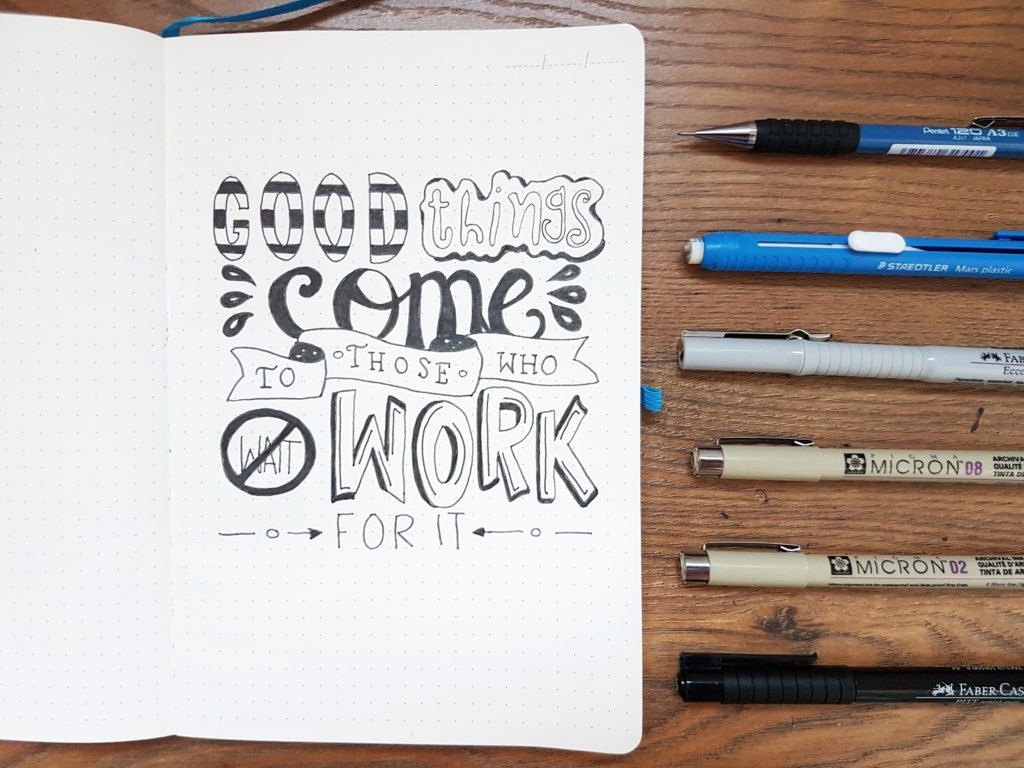 GOOD things
come
TO THOSE WHO
WAIT WORK
FOR IT
Pentel 120 A3 DX
A317 JAPAN
STAEDTLER Mars plastic
FAB
Ecco
PIGMA
MICRON 08
ARCHIVAL
QUALITÉ
TINTA DE
PIGMA
MICRON 02
ARCHIVAL
QUALITÉ D'AR
TINTA DE AR
FABER-CAS